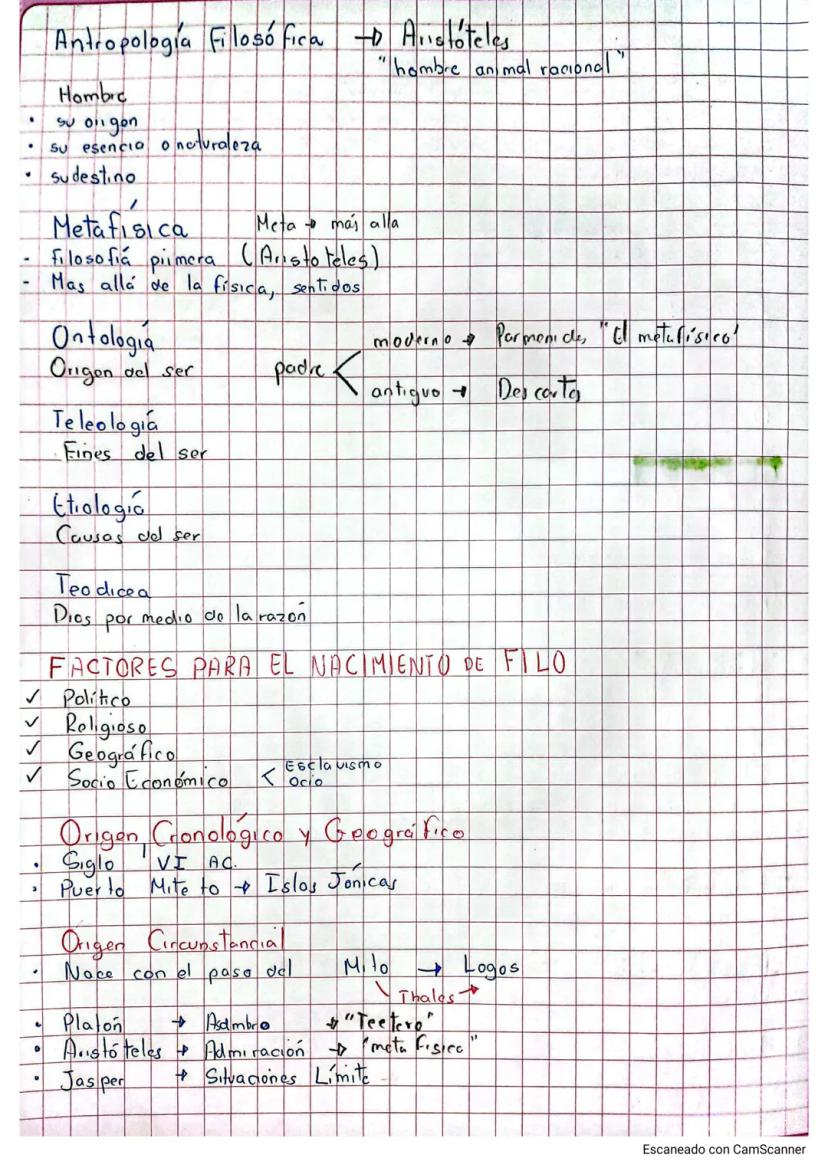 Antropología Filosófica → Aristóteles
"hombre animal racional"
Hombre
• su origen
• su esencia o naturaleza
• su destino
Metafísica Meta → más alla
- filosofiá primera (Aristoteles)
- Mas allá de la física, sentidos
Ontología
Origen del ser
padre < moderno → Parmenides "El metafísico'
antiguo → Descartes
Teleología
Fines del ser
Etiología
Causas del ser
Teodicea
Dios por medio de la razón
FACTORES PARA EL NACIMIENTO DE FILO
✓ Político
✓ Religioso
✓ Geográfico
✓ Socio Económico < Esclavismo
Ocio
Origen Cronológico y Geográfico
• Siglo VI AC.
• Puerto Mileto → Islas Jónicas
Origen Circunstancial
• Nace con el paso del Mito → Logos
Thales →
• Platón → Asombro → "Teetero"
• Aristóteles → Admiración → "meta fisica"
• Jasper → Situaciones Límite
Escaneado con CamScanner